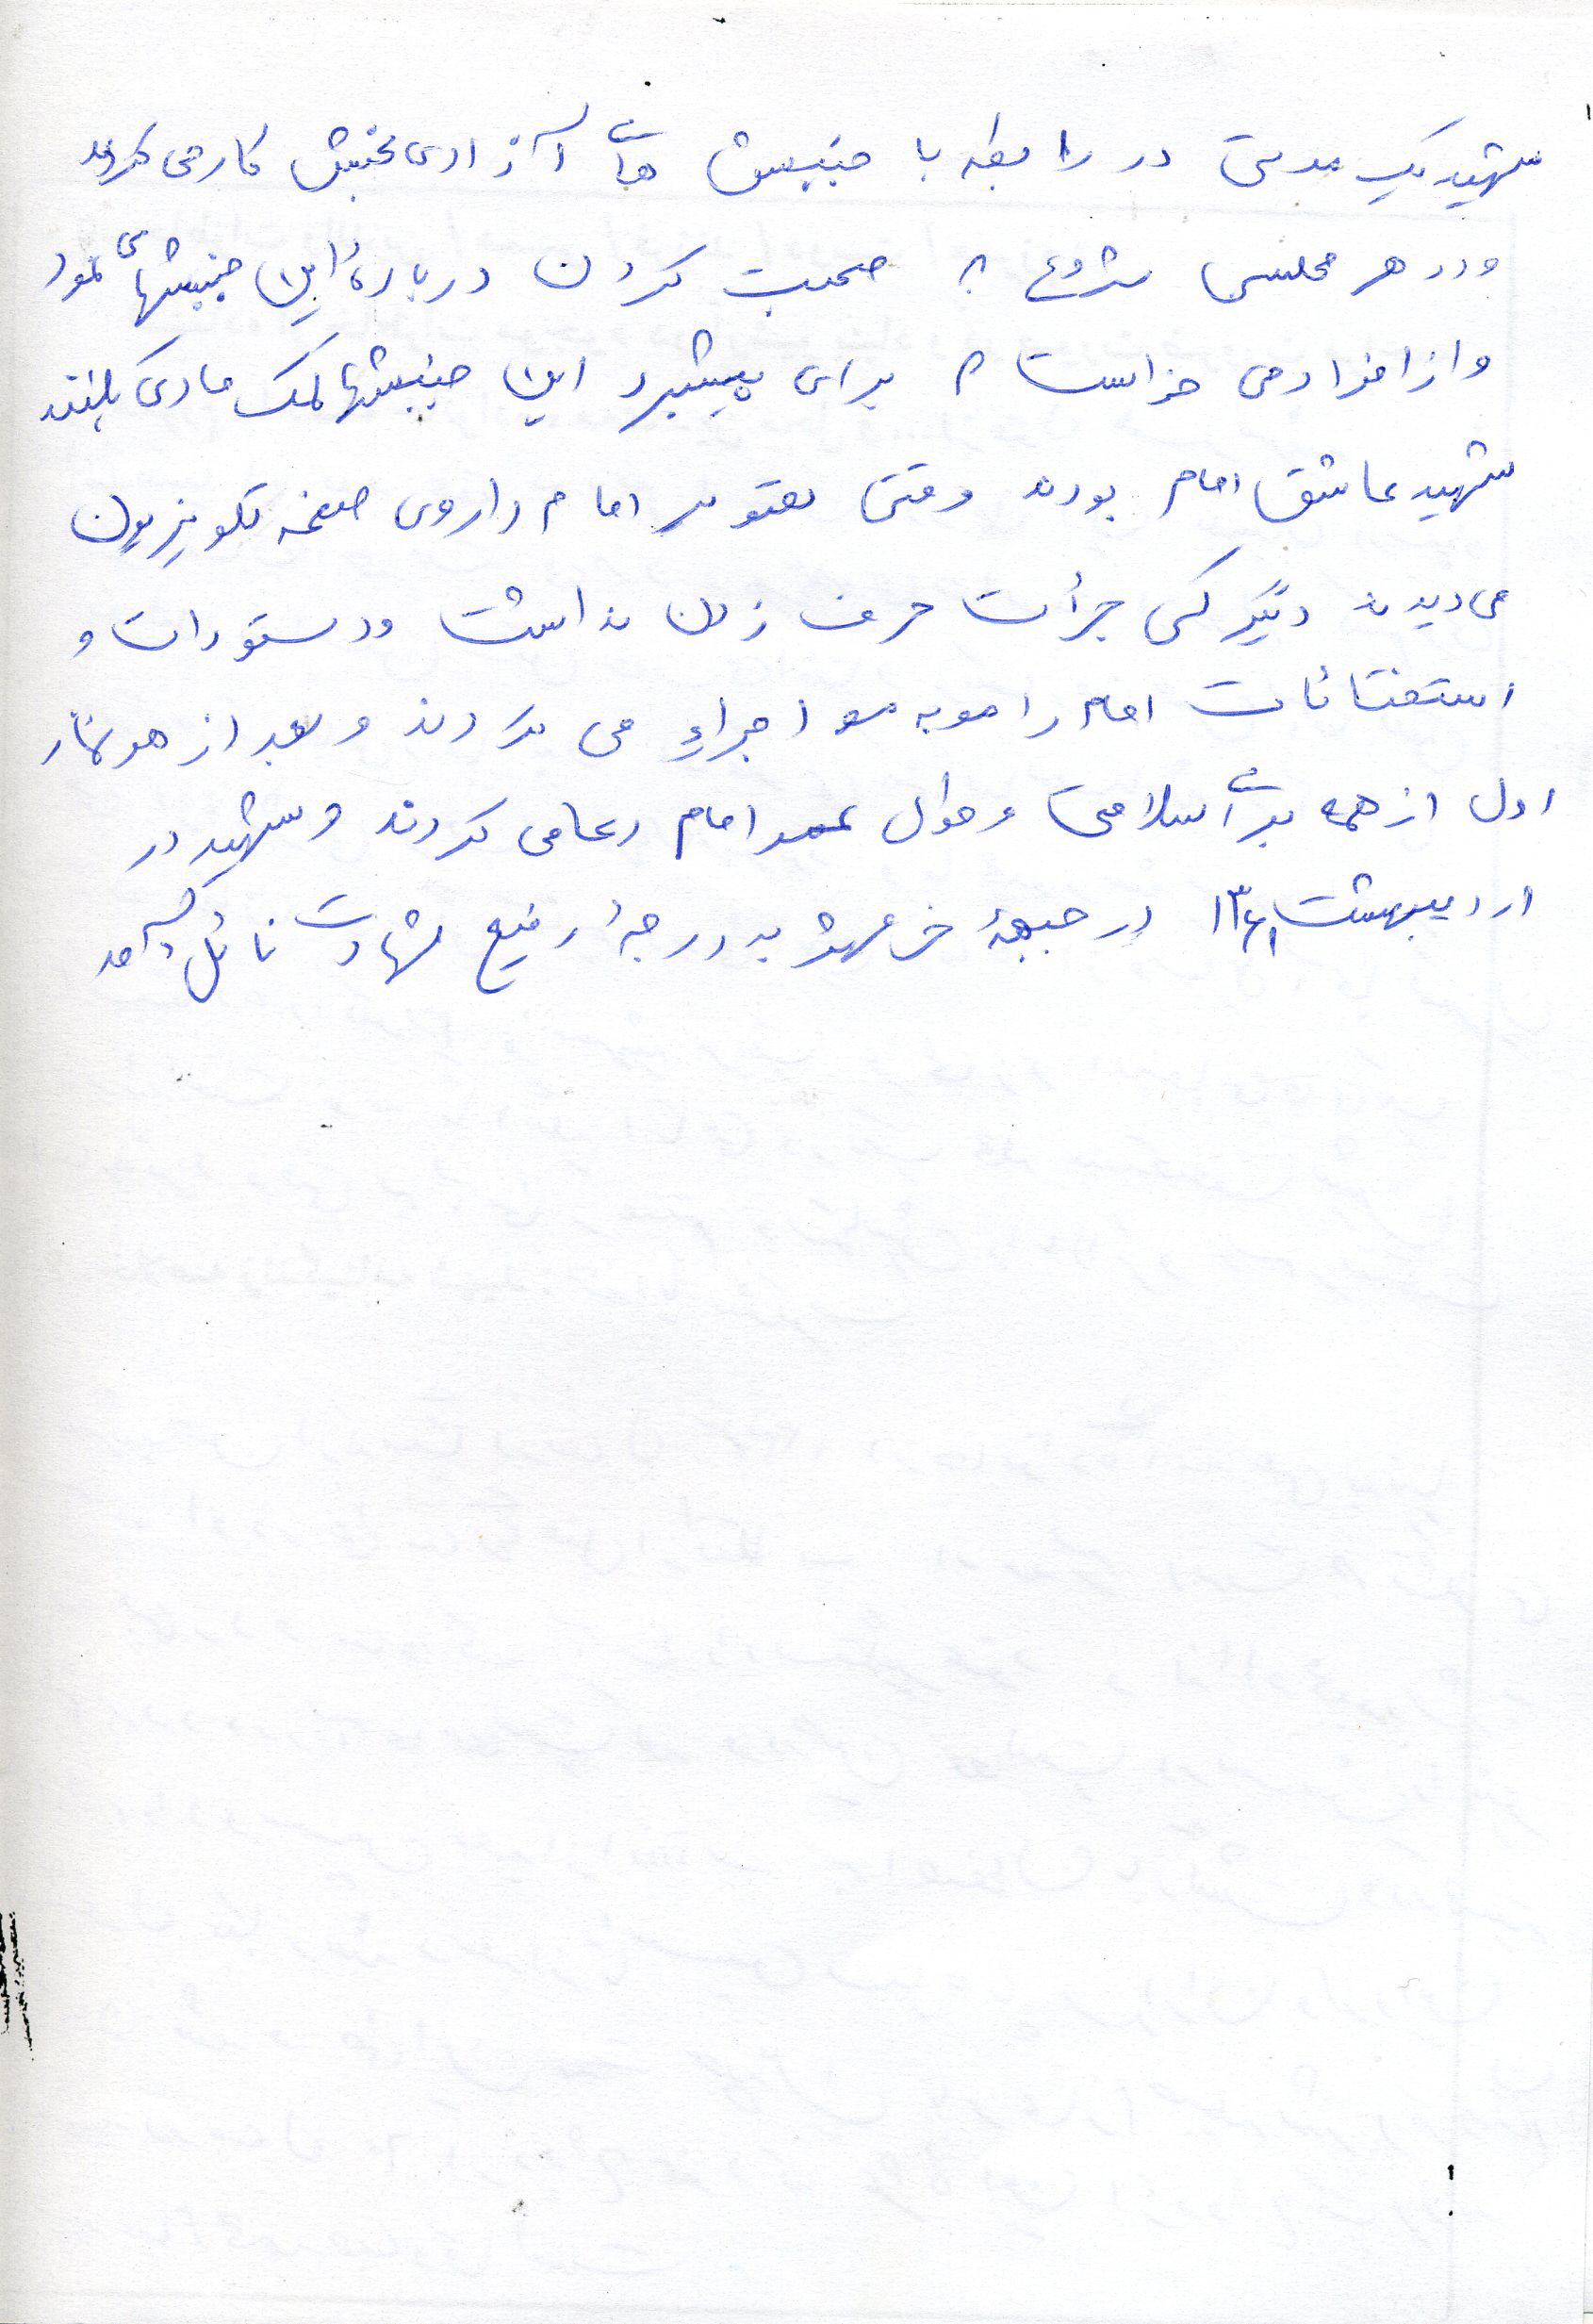 شهید یک مدتی در رابطه با جنبش های آزادی بخش کار می کردند
و در هر مجلسی شروع به صحبت کردن درباره این جنبشها می نمود
و از افراد می خواست که برای پیشبرد این جنبشها کمک مادی بکنند
شهید عاشق امام بودند وقتی تصویر امام را روی صفحه تلویزیون
می دیدند دیگر کسی جرأت حرف زدن نداشت و دستورات و
استفتائات امام را مو به مو اجراء می کردند و بعد از هر نماز
اول از همه برای اسلامی و طول عمر امام دعا می کردند و شهید در
اردیبهشت ۱۳۶۱ در جبهۀ خرمشهر به درجۀ رفیع شهادت نائل آمد